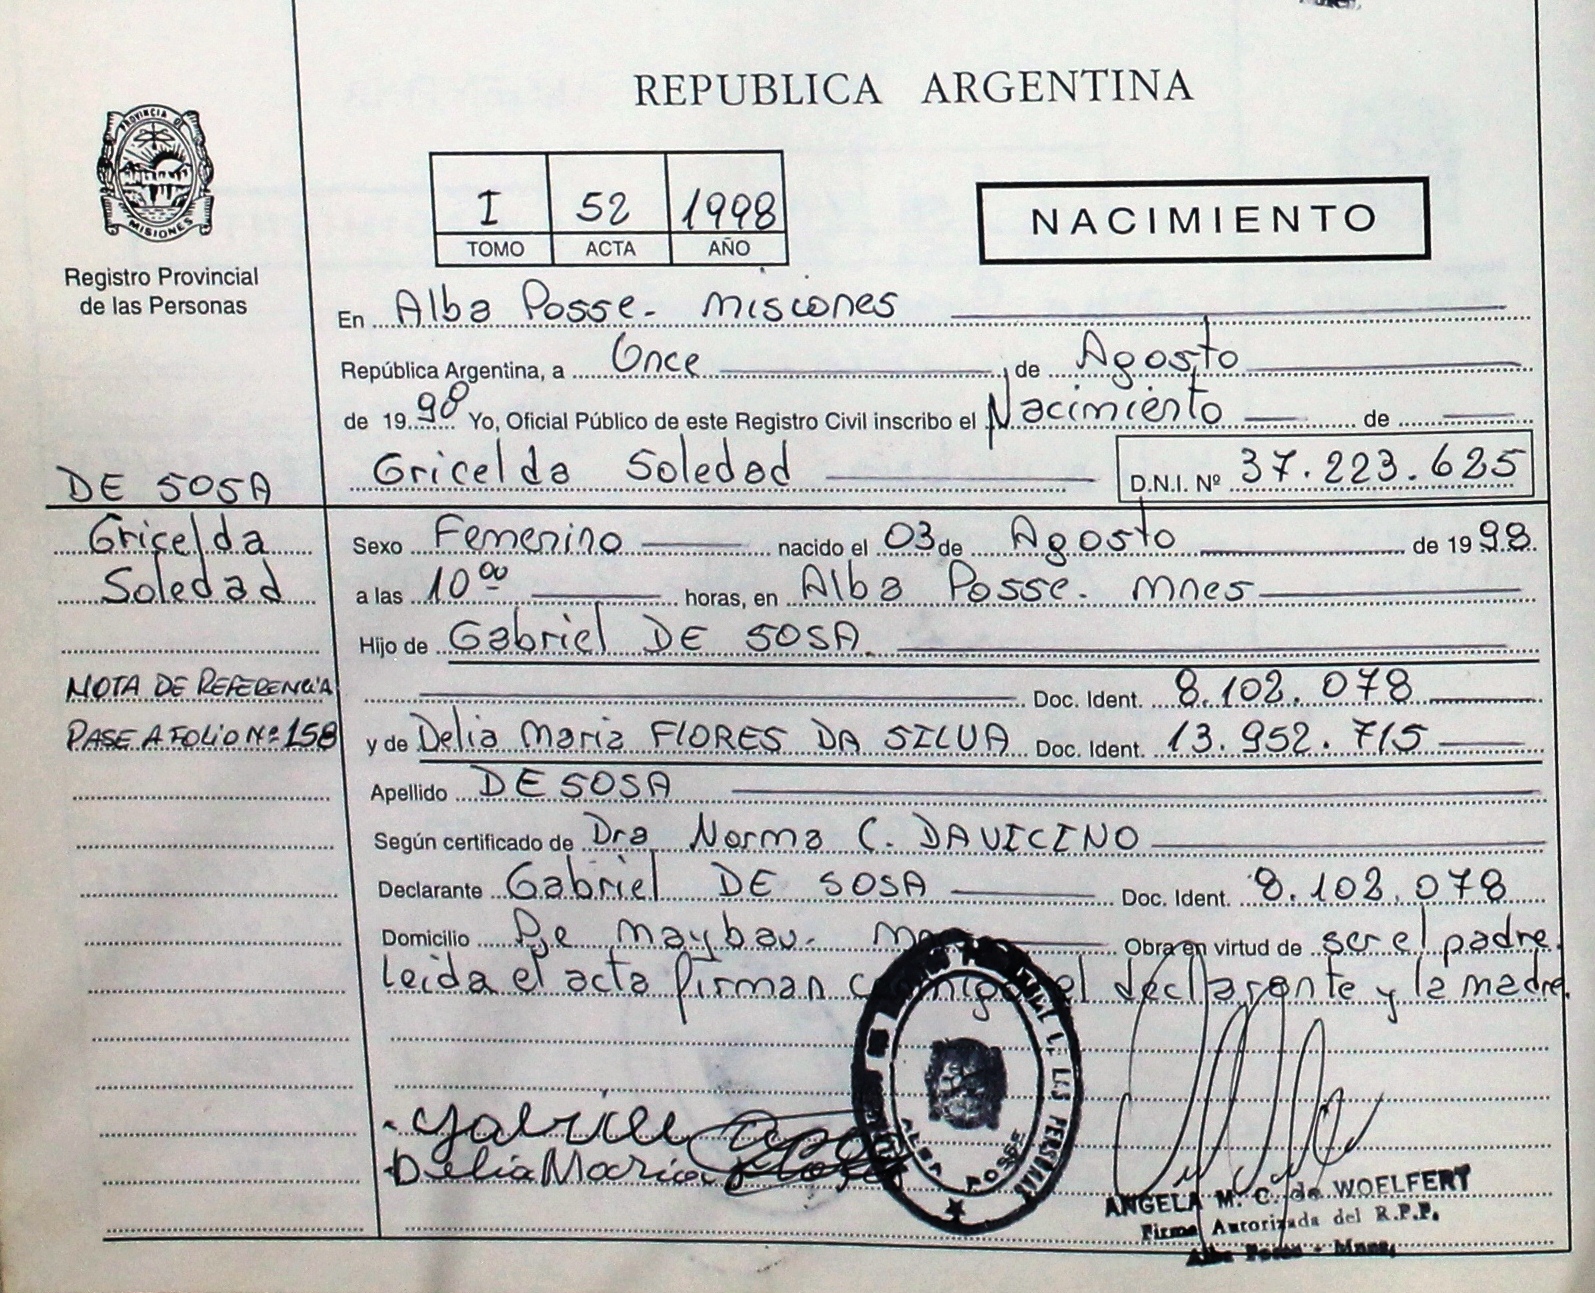 REPUBLICA ARGENTINA
PROVINCIA DE
MISIONES
Registro Provincial
de las Personas
I 52 1998
TOMO ACTA AÑO
NACIMIENTO
En Alba Posse - Misiones
República Argentina, a Once de Agosto
de 1998 Yo, Oficial Público de este Registro Civil inscribo el Nacimiento de
Gricelda Soledad D.N.I. Nº 37.223.625
DE SOSA
Gricelda
Soledad
NOTA DE REFERENCIA
PASE A FOLIO Nº 158
Sexo Femenino nacido el 03 de Agosto de 1998
a las 10 00 horas, en Alba Posse - Mnes
Hijo de Gabriel DE SOSA
Doc. Ident. 8.102.078
y de Delia Maria FLORES DA SILVA Doc. Ident. 13.952.715
Apellido DE SOSA
Según certificado de Dra Norma C. DAVICINO
Declarante Gabriel DE SOSA Doc. Ident. 8.102.078
Domicilio Pje Maybau - Obra en virtud de ser el padre.
Leida el acta firman conmigo el declarante y la madre.
Delia Maria
ALBA POSSE
LAS PERSONAS
ANGELA M. C. de WOELFERT
Firma Autorizada del R.P.P.
Alba Posse - Mnes.